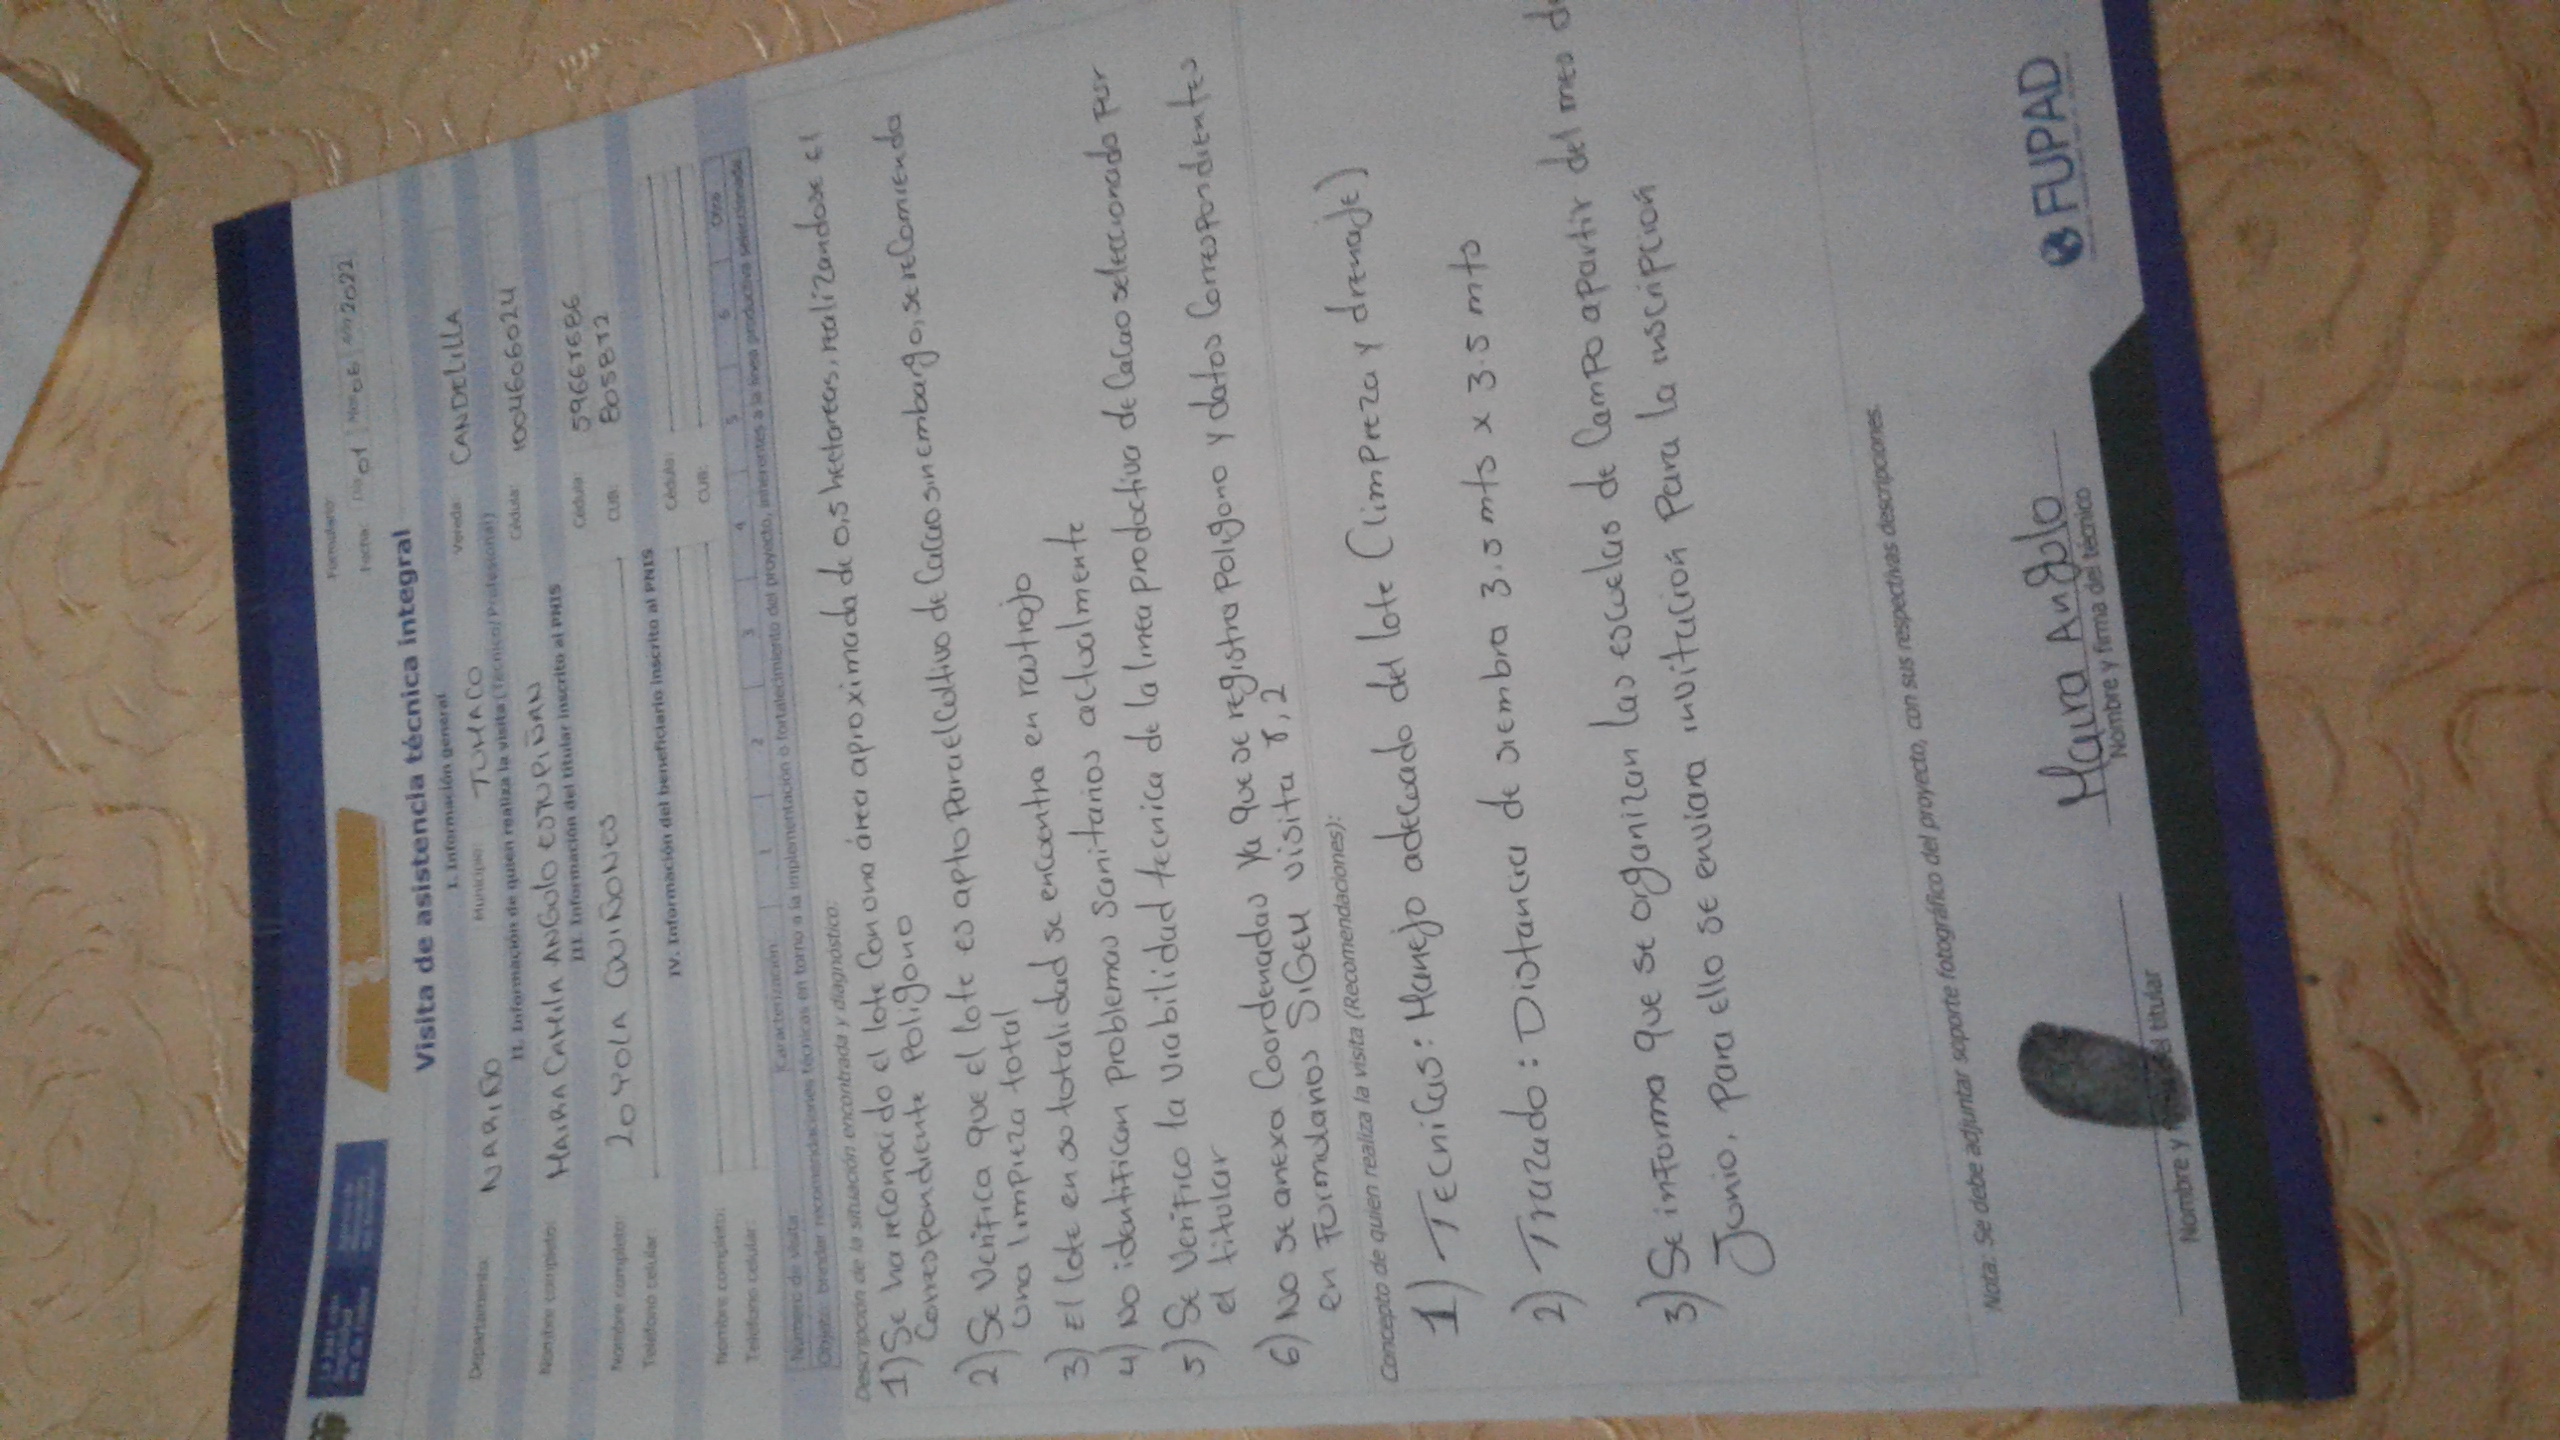 Formulario:
Fecha: Día 01 Mes 06 Año 2022
Visita de asistencia técnica integral
I. Información general
Departamento: NARIÑO Municipio: TUMACO Vereda: CANDELILLA
II. Información de quien realiza la visita (Técnico/Profesional)
Nombre completo: MAIRA CAMILA ANGULO ESTUPIÑAN Cédula: 1004606024
III. Información del titular inscrito al PNIS
Nombre completo: ZOYOLA QUIÑONES Cédula:
Teléfono celular: CUB:
IV. Información del beneficiario inscrito al PNIS
Nombre completo: Cédula:
Teléfono celular: CUB:
Número de visita Caracterización 1 2 3 4 5 6 Otra
Objeto: brindar recomendaciones técnicas en torno a la implementación o fortalecimiento del proyecto, inherentes a la línea productiva seleccionada
Descripción de la situación encontrada y diagnóstico:
1) Se ha reconocido el lote con una área aproximada de 0,5 hectareas, realizandose el
Correspondiente Poligono
2) Se Verifica que el lote es apto para el Cultivo de Cacao sin embargo, se recomienda
una limpieza total
3) El lote en su totalidad se encuentra en rastrojo
4) No identifican problemas sanitarios actualmente
5) Se Verifico la viabilidad tecnica de la linea productiva de Cacao seleccionada por
el titular
6) No se anexa Coordenadas ya que se registra Poligono y datos Correspondientes
en Formularios visita
Concepto de quien realiza la visita (Recomendaciones):
1) Tecnicas: Manejo adecuado del lote (limpieza y drenaje)
2) Trazado: Distancia de siembra 3.5 mts x 3.5 mts
3) Se informa que se organizan las escuelas de Campo apartir del mes de
Junio. Para ello se enviara invitación Para la inscripción
Nota: Se debe adjuntar soporte fotográfico del proyecto, con sus respectivas descripciones.
Maira Angulo
Nombre y el titular Nombre y firma del técnico
FUPAD